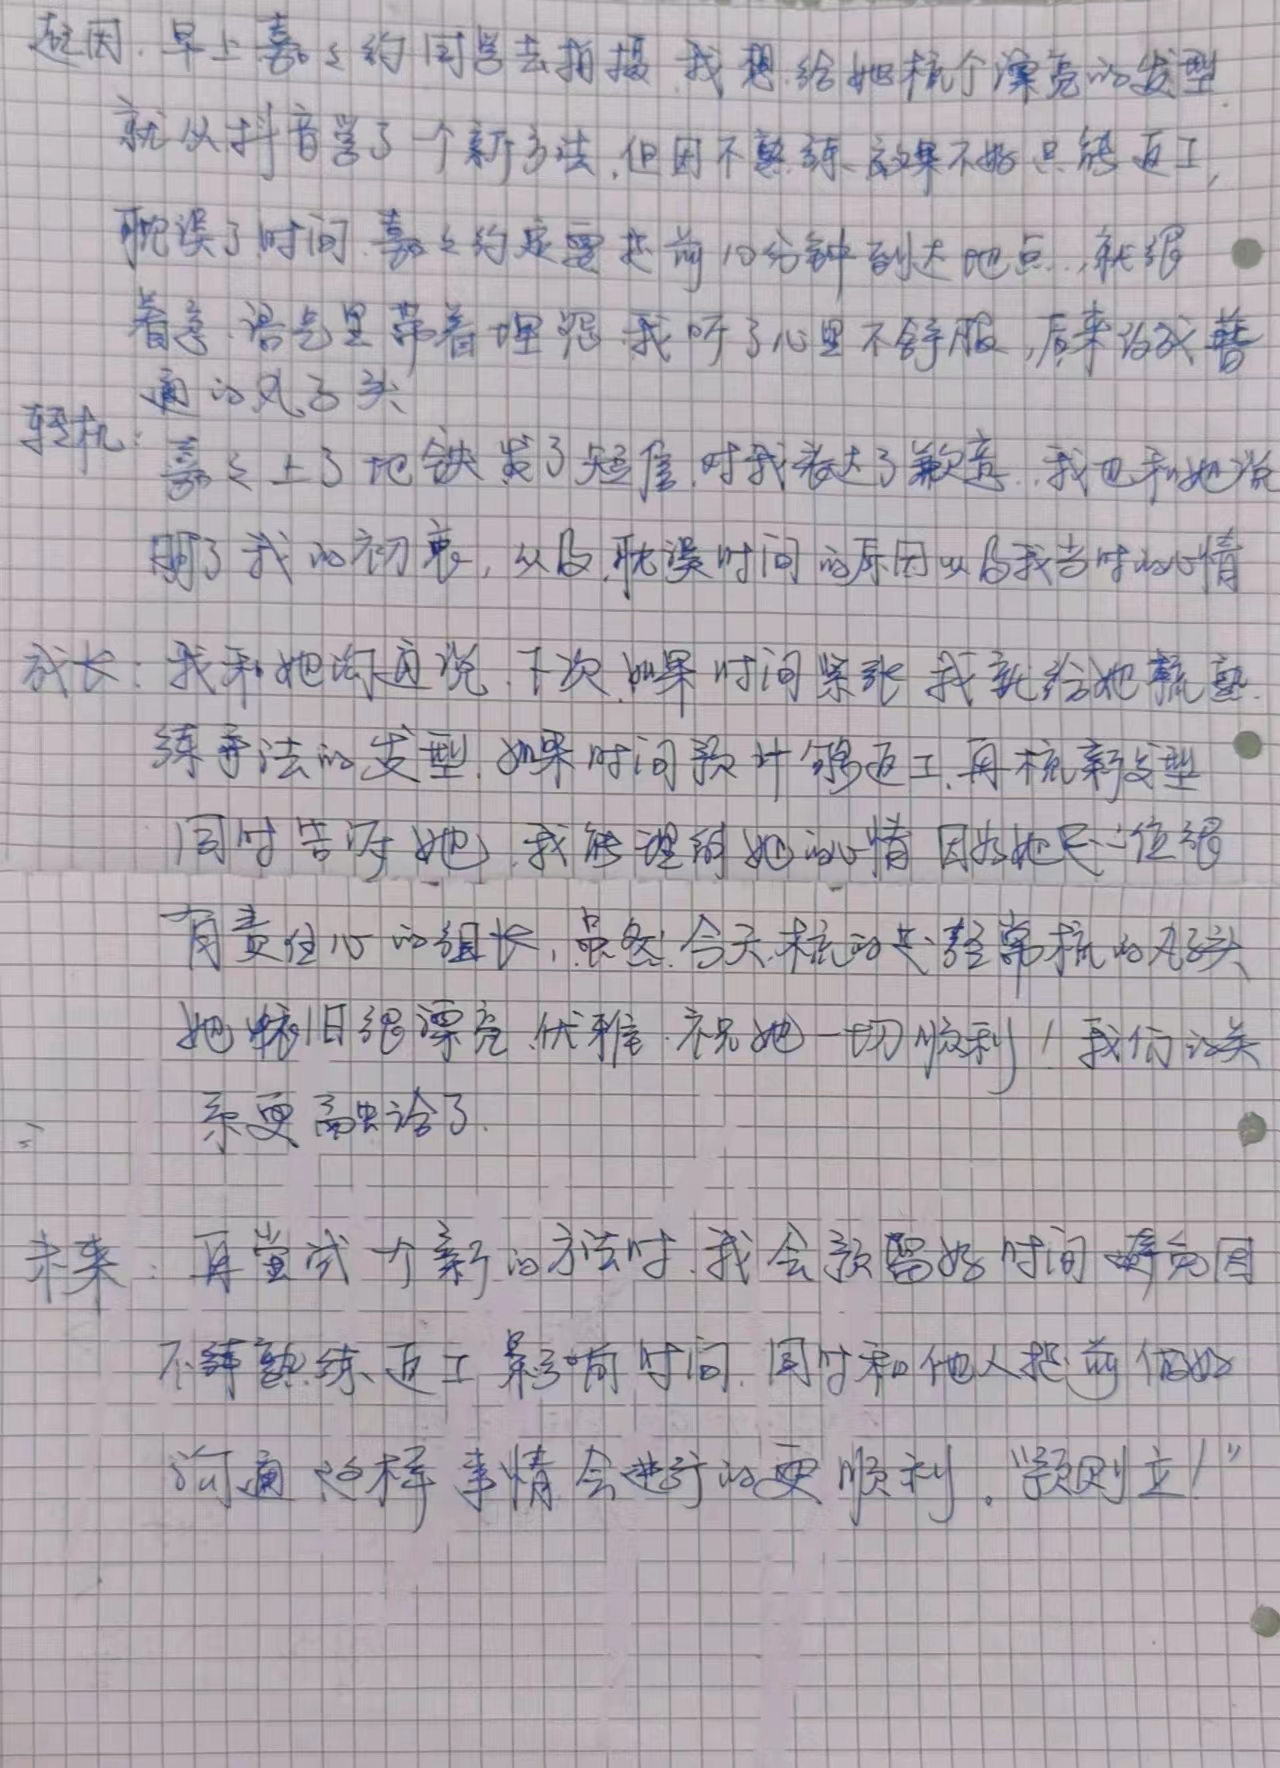 起因.早上嘉嘉约同学去拍摄.我想给她梳个漂亮的发型
就从抖音学了一个新方法,但因不熟练、效果不好只能返工,
耽误了时间.嘉嘉约定要提前10分钟到达地点.,就很
着急.语气里带着埋怨.我听了心里不舒服,后来改成普
通的丸子头
转机:
嘉嘉上了地铁发了短信.对我表达了歉意.我也和她说
明了我的初衷,以及耽误时间的原因以及我当时的心情
成长:我和她沟通说.下次如果时间紧张我就给她梳熟
练手法的发型.如果时间预计够返工.再梳新发型
同时告诉她.我能理解她的心情因为她是一位很
有责任心的组长,虽然今天梳的是经常梳的丸子头
她依旧很漂亮.优雅.祝她一切顺利!我们的关
系更融洽了.
未来:再尝试个新的方法时.我会预留好时间避免因
不熟练、返工影响时间.同时和他人提前做好
沟通这样事情会进行的更顺利。"预则立!"